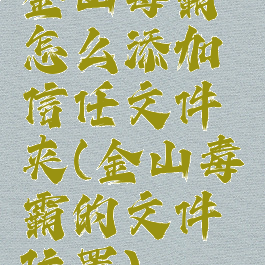 金山毒霸
怎么添加
信任文件
夹(金山毒
霸的文件
位置)